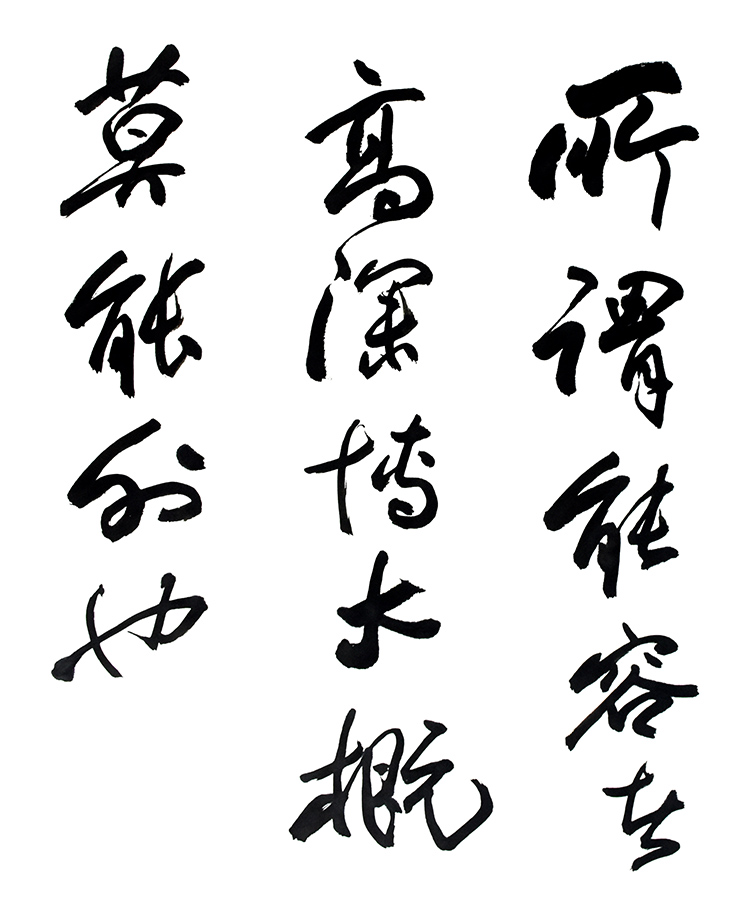 所谓能容者
高深博大概
莫能外也